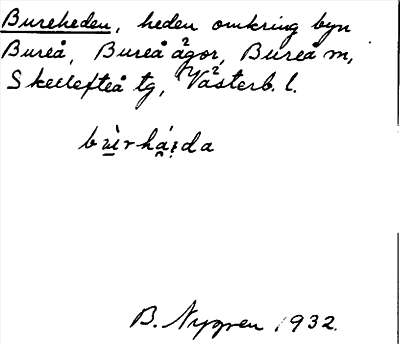 Bureheden, heden omkring byn
Bureå, Bureå ägor, Bureå m,
Skellefteå tg, Västerb. l.
B. Nygren 1932.